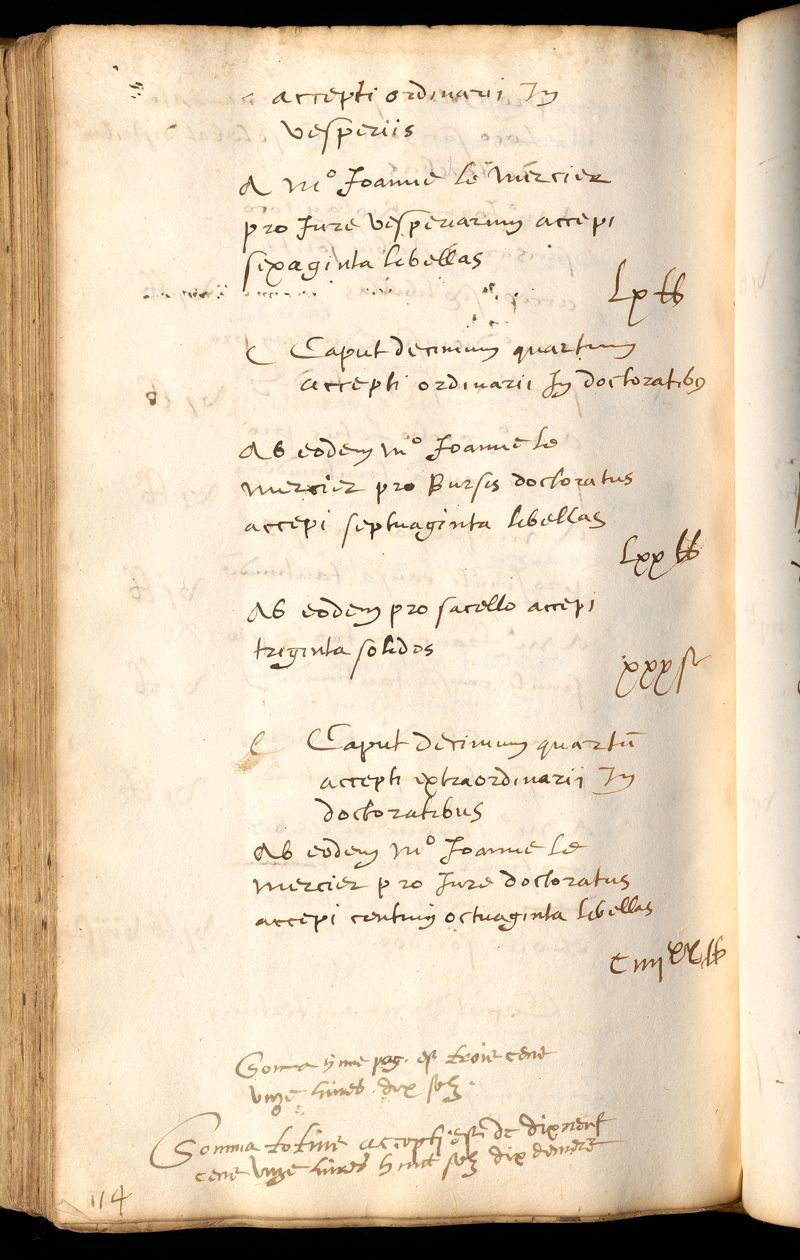 accepti ordinarii In
vesperiis
A mº Joanne le mercier
pro Jure vesperiarum accepi
sexaginta libellas
Lx lb
Caput decimum quartum
accepti ordinarii In doctoratibus
Ab eodem mº Joanne le
mercier pro Bursis doctoratus
accepi septuaginta libellas
Lxx lb
Ab eodem pro sacello accepi
triginta solidos
xxx s
Caput decimum quartū
accepti extraordinarii In
doctoratibus
Ab eodem mº Joanne le
mercier pro Jure doctoratus
accepi centum octuaginta libellas
C iiij xx lb
Soma huius pag. est trois cens
unze livres dix solz
Somma totius accepti est de dixneuf
cens unze livres huict solz dix deniers
114